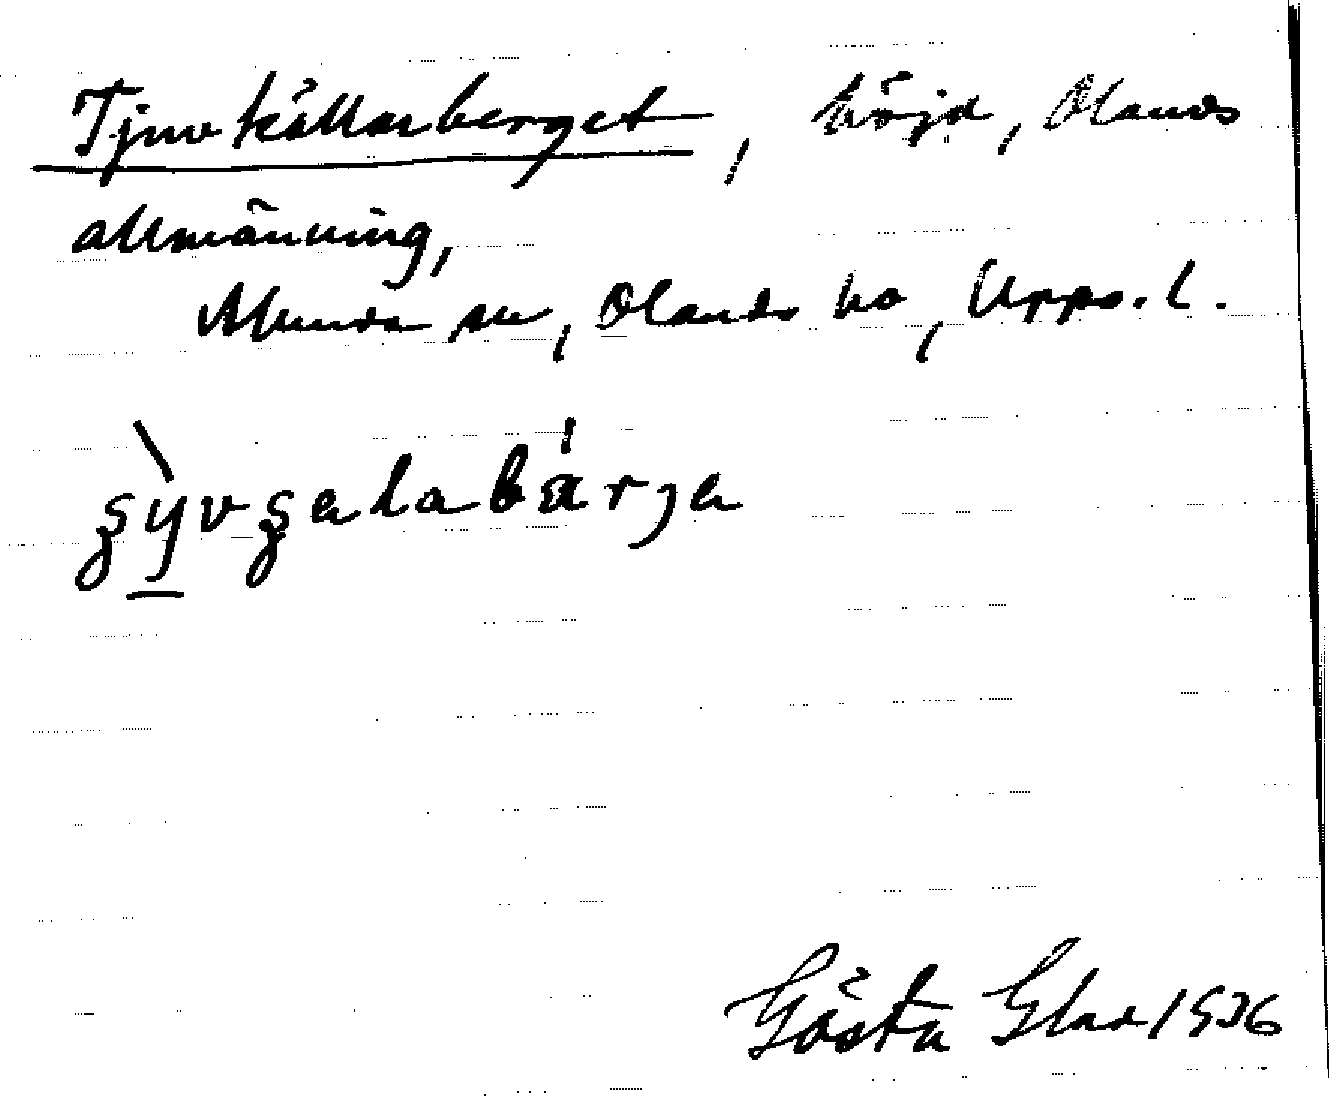 Tjuvkällarberget, höjd, Olands
allmänning,
Alunda sn, Olands hd, Upps. l.
Gösta Glad 1936